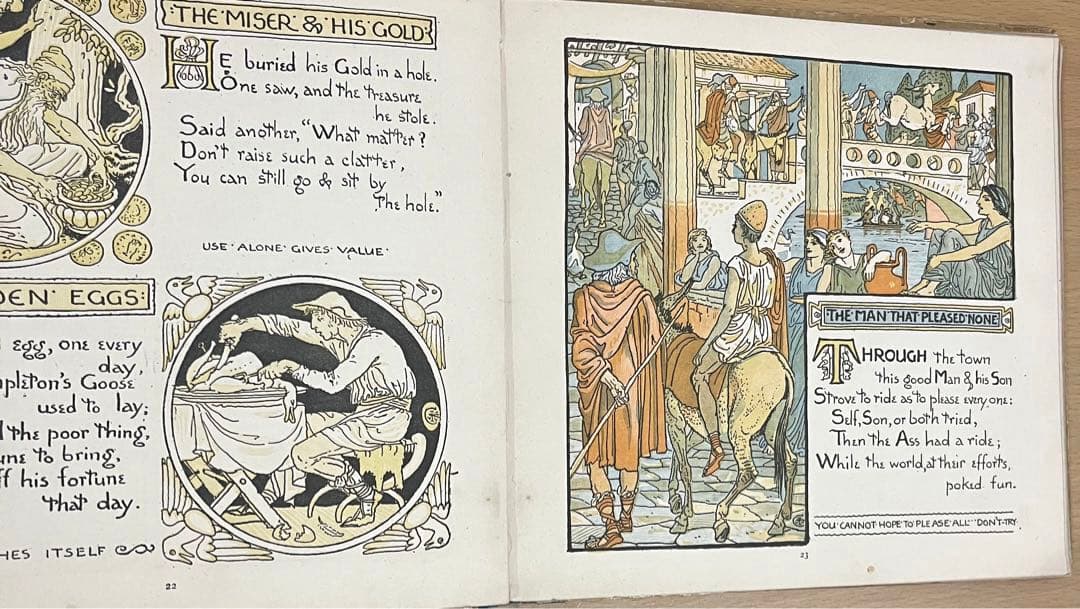 THE MISER & HIS GOLD
He buried his Gold in a hole.
One saw, and the treasure
he stole.
Said another, "What matter?
Don't raise such a clatter,
You can still go & sit by
the hole."
USE ALONE GIVES VALUE
EGGS:
Egg, one every
day,
Goose
used to lay;
the poor thing,
to bring,
his fortune
that day.
ITSELF
22
THE MAN THAT PLEASED NONE
THROUGH the town
this good Man & his Son
Strove to ride as to please everyone:
Self, Son, or both tried,
Then the Ass had a ride;
While the world, at their efforts,
poked fun.
YOU CANNOT HOPE TO PLEASE ALL DON'T TRY
23